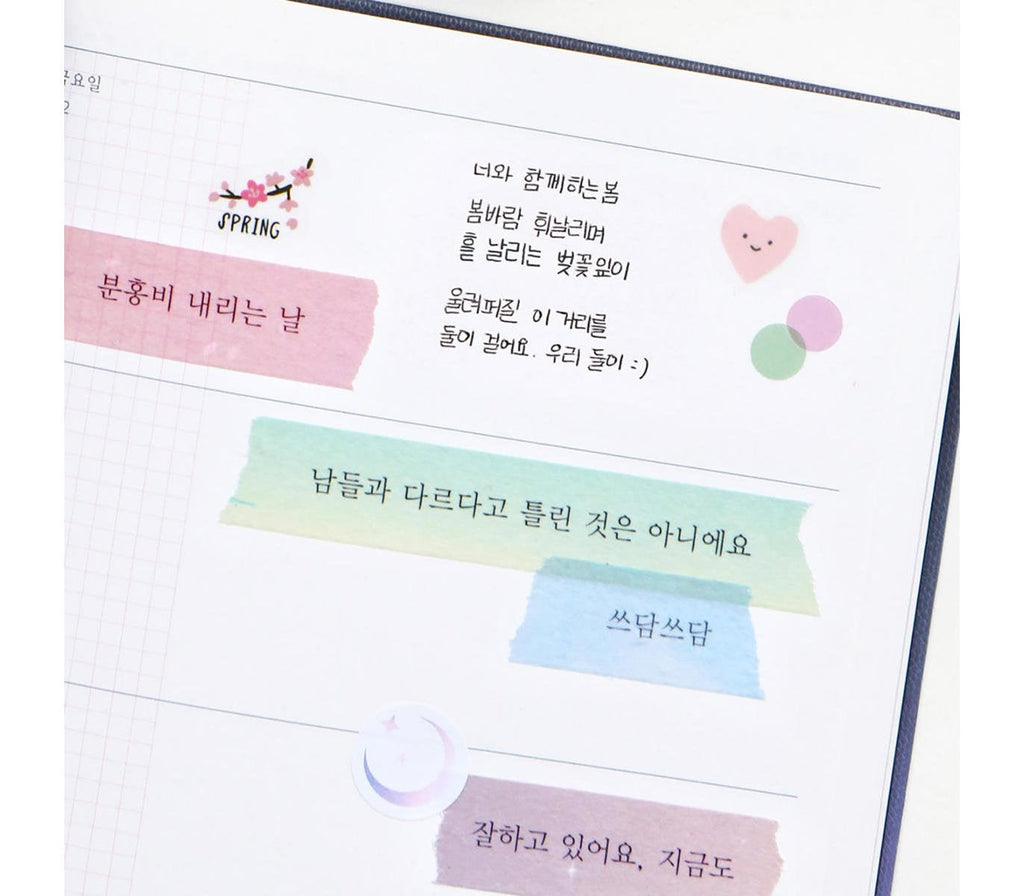 금요일
2
SPRING
너와 함께하는 봄
봄바람 휘날리며
흩날리는 벚꽃잎이
울려퍼질 이 거리를
둘이 걸어요. 우리 둘이 :)
분홍비 내리는 날
남들과 다르다고 틀린 것은 아니에요
쓰담쓰담
잘하고 있어요, 지금도